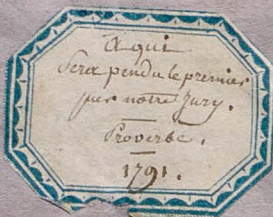 à qui
sera pendu le premier
par notre Jury.
Proverbe.
1791.